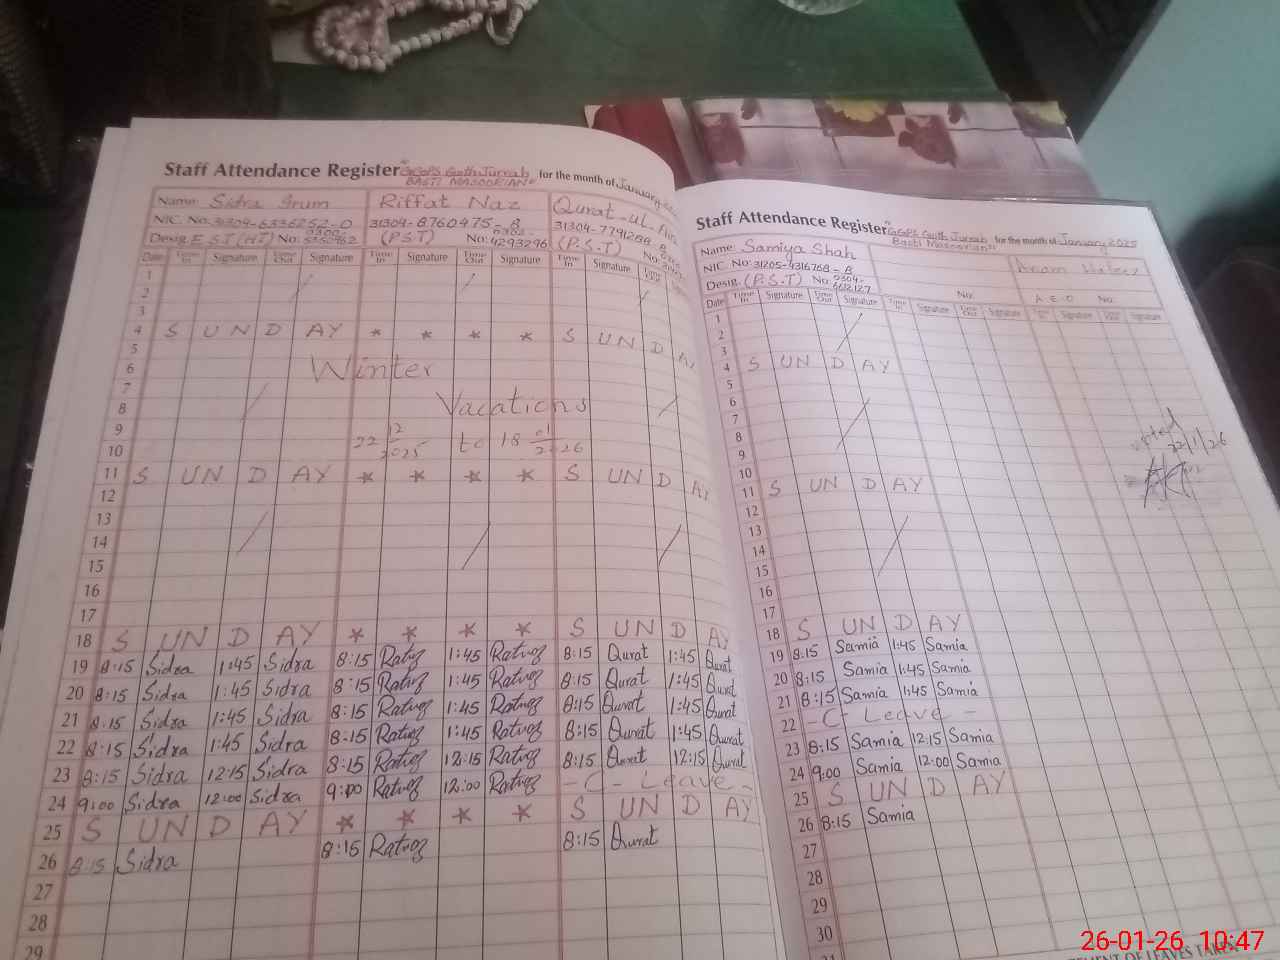 Staff Attendance Register GGPS Goth Jumah for the month of January
BASTI MASOORIAN
Name: Sidra Irum Riffat Naz Qurat-ul-Ain
NIC. No: 31304-6336252-0 31304-8760475-8 31304-7791288-8
Desig. E.S.T (HT) No: 0300- (PST) No: 0303- 4293296 (P.S.T) No:
Date Time In Signature Time Out Signature Time In Signature Time Out Signature Time In Signature Time Out
1
2
3
4 S U N D A Y * * * * S U N D A
5
6 Winter
7
8 Vacations
9
10 22 12 2025 to 18 01 2026
11 S U N D A Y * * * * S U N D A Y
12
13
14
15
16
17
18 S U N D A Y * * * * S U N D A Y
19 8:15 Sidra 1:45 Sidra 8:15 1:45 8:15 Qurat 1:45 Qurat
20 8:15 Sidra 1:45 Sidra 8:15 1:45 8:15 Qurat 1:45 Qurat
21 8:15 Sidra 1:45 Sidra 8:15 1:45 8:15 Qurat 1:45 Qurat
22 8:15 Sidra 1:45 Sidra 8:15 1:45 8:15 Qurat 1:45 Qurat
23 8:15 Sidra 12:15 Sidra 8:15 12:15 8:15 Qurat 12:15 Qurat
24 9:00 Sidra 12:00 Sidra 9:00 12:00 -C- Leave-
25 S U N D A Y * * * * S U N D A Y
26 8:15 Sidra 8:15 8:15 Qurat
27
28
29
Staff Attendance Register GGPS Goth Jumah for the month of January 2025
Basti Masoorian
Name: Samiya Shah Anam Hafeez
NIC. No: 31205-4316768-8
Desig. (P.S.T) No: 0304- 6612127 No: A.E.O No:
Date Time In Signature Time Out Signature Time In Signature Time Out Signature Time In Signature Time Out Signature
1
2
3
4 S U N D A Y
5
6
7
8
9
22/1/26
10
11 S U N D A Y
12
13
14
15
16
17
18 S U N D A Y
19 8:15 Samia 1:45 Samia
20 8:15 Samia 1:45 Samia
21 8:15 Samia 1:45 Samia
22 -C- Leave-
23 8:15 Samia 12:15 Samia
24 9:00 Samia 12:00 Samia
25 S U N D A Y
26 8:15 Samia
27
28
29
30
31
OF LEAVES TAKEN
26-01-26 10:47